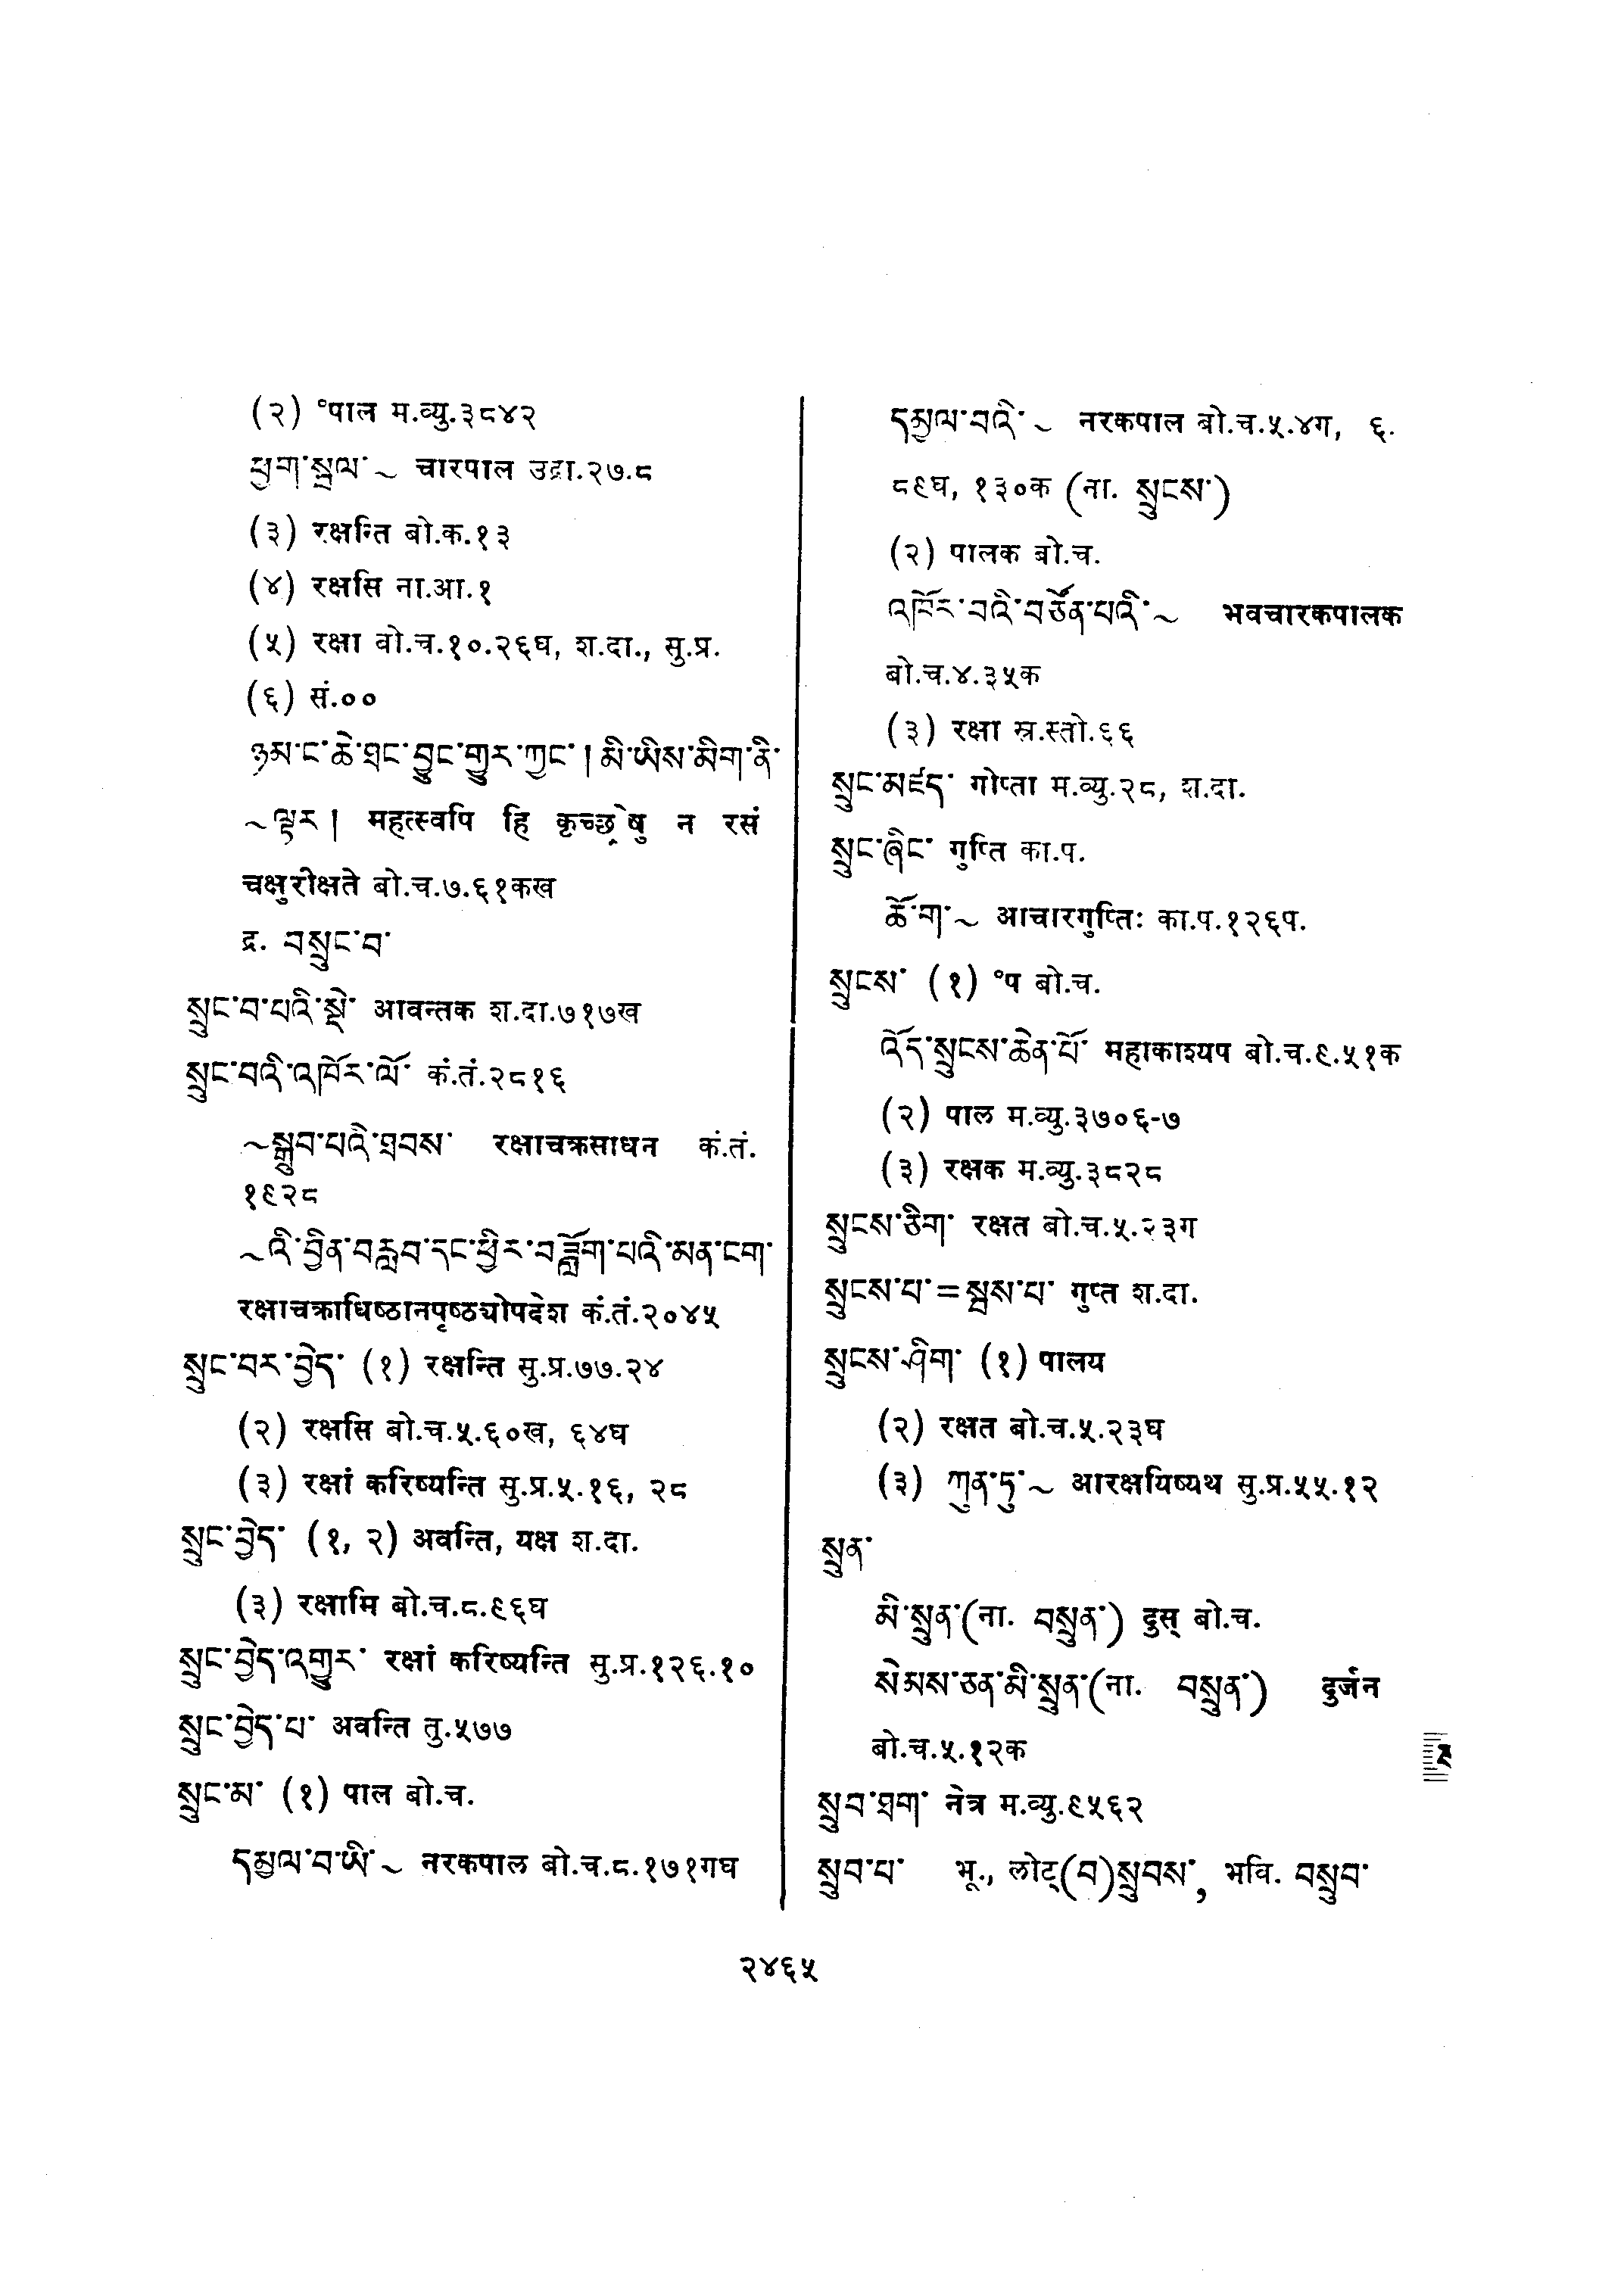 (२) °पाल म.व्यु.३८४२
ཕྱག་སྲལ་ ~ चारपाल उद्रा.२७.८
(३) रक्षन्ति बो.क.१३
(४) रक्षसि ना.आ.१
(५) रक्षा बो.च.१०.२६घ, श.दा., सु.प्र.
(६) सं.००
ཉམ་ང་ཆེ་ཐང་བྱུང་གྱུར་ཀྱང་། མི་ཡིས་མིག་ནི་
~ལྟར། महत्स्वपि हि कृच्छ्रेषु न रसं
चक्षुरीक्षते बो.च.७.६१कख
द्र. བསྲུང་བ་
སྲུང་བ་པའི་སྡེ་ आवन्तक श.दा.७१७ख
སྲུང་བའི་འཁོར་ལོ་ कं.तं.२८१६
~སྒྲུབ་པའི་ཐབས་ रक्षाचक्रसाधन कं.तं.
१९२८
~འི་བྱིན་བརླབ་དང་ཕྱིར་བཟློག་པའི་མན་ངག་
रक्षाचक्राधिष्ठानपृष्ठ्योपदेश कं.तं.२०४५
སྲུང་བར་བྱེད་ (१) रक्षन्ति सु.प्र.७७.२४
(२) रक्षसि बो.च.५.६०ख, ६४घ
(३) रक्षां करिष्यन्ति सु.प्र.५.१६, २८
སྲུང་བྱེད་ (१, २) अवन्ति, यक्ष श.दा.
(३) रक्षामि बो.च.८.९६घ
སྲུང་བྱེད་འགྱུར་ रक्षां करिष्यन्ति सु.प्र.१२६.१०
སྲུང་བྱེད་པ་ अवन्ति तु.५७७
སྲུང་མ་ (१) पाल बो.च.
དམྱལ་བ་ཡི་ ~ नरकपाल बो.च.८.१७१गघ
དམྱལ་བའི་ ~ नरकपाल बो.च.५.४ग, ६.
८९घ, १३०क (ना. སྲུངས་)
(२) पालक बो.च.
འཁོར་བའི་བཙོན་པའི་ ~ भवचारकपालक
बो.च.४.३५क
(३) रक्षा स्र.स्तो.६६
སྲུང་མཛད་ गोप्ता म.व्यु.२८, श.दा.
སྲུང་ཞིང་ गुप्ति का.प.
ཆོ་ག་ ~ आचारगुप्तिः का.प.१२६प.
སྲུངས་ (१) °प बो.च.
འོད་སྲུངས་ཆེན་པོ་ महाकाश्यप बो.च.९.५१क
(२) पाल म.व्यु.३७०६-७
(३) रक्षक म.व्यु.३८२८
སྲུངས་ཅིག་ रक्षत बो.च.५.२३ग
སྲུངས་པ་=སྦས་པ་ गुप्त श.दा.
སྲུངས་ཤིག་ (१) पालय
(२) रक्षत बो.च.५.२३घ
(३) ཀུན་ཏུ་ ~ आरक्षयिष्यथ सु.प्र.५५.१२
སྲུན་
མི་སྲུན་(ना. བསྲུན་) दुस् बो.च.
སེམས་ཅན་མི་སྲུན་(ना. བསྲུན་) दुर्जन
बो.च.५.१२क
སྲུབ་ཐག་ नेत्र म.व्यु.९५६२
སྲུབ་པ་ भू., लोट्(བ)སྲུབས་, भवि. བསྲུབ་
२४६५